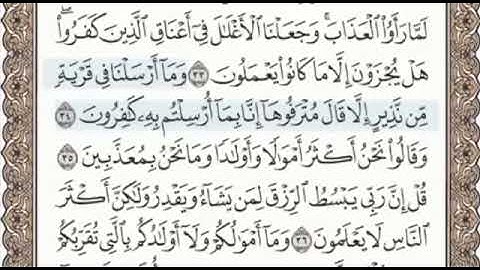 لَمَّا رَأَوُا۟ ٱلْعَذَابَ ۚ وَجَعَلْنَا ٱلْأَغْلَٰلَ فِىٓ أَعْنَاقِ ٱلَّذِينَ كَفَرُوا۟ ۖ
هَلْ يُجْزَوْنَ إِلَّا مَا كَانُوا۟ يَعْمَلُونَ ٣٣ وَمَآ أَرْسَلْنَا فِى قَرْيَةٍ
مِّن نَّذِيرٍ إِلَّا قَالَ مُتْرَفُوهَآ إِنَّا بِمَآ أُرْسِلْتُم بِهِۦ كَٰفِرُونَ ٣٤
وَقَالُوا۟ نَحْنُ أَكْثَرُ أَمْوَٰلًا وَأَوْلَٰدًا وَمَا نَحْنُ بِمُعَذَّبِينَ ٣٥
قُلْ إِنَّ رَبِّى يَبْسُطُ ٱلرِّزْقَ لِمَن يَشَآءُ وَيَقْدِرُ وَلَٰكِنَّ أَكْثَرَ
ٱلنَّاسِ لَا يَعْلَمُونَ ٣٦ وَمَآ أَمْوَٰلُكُمْ وَلَآ أَوْلَٰدُكُم بِٱلَّتِى تُقَرِّبُكُمْ